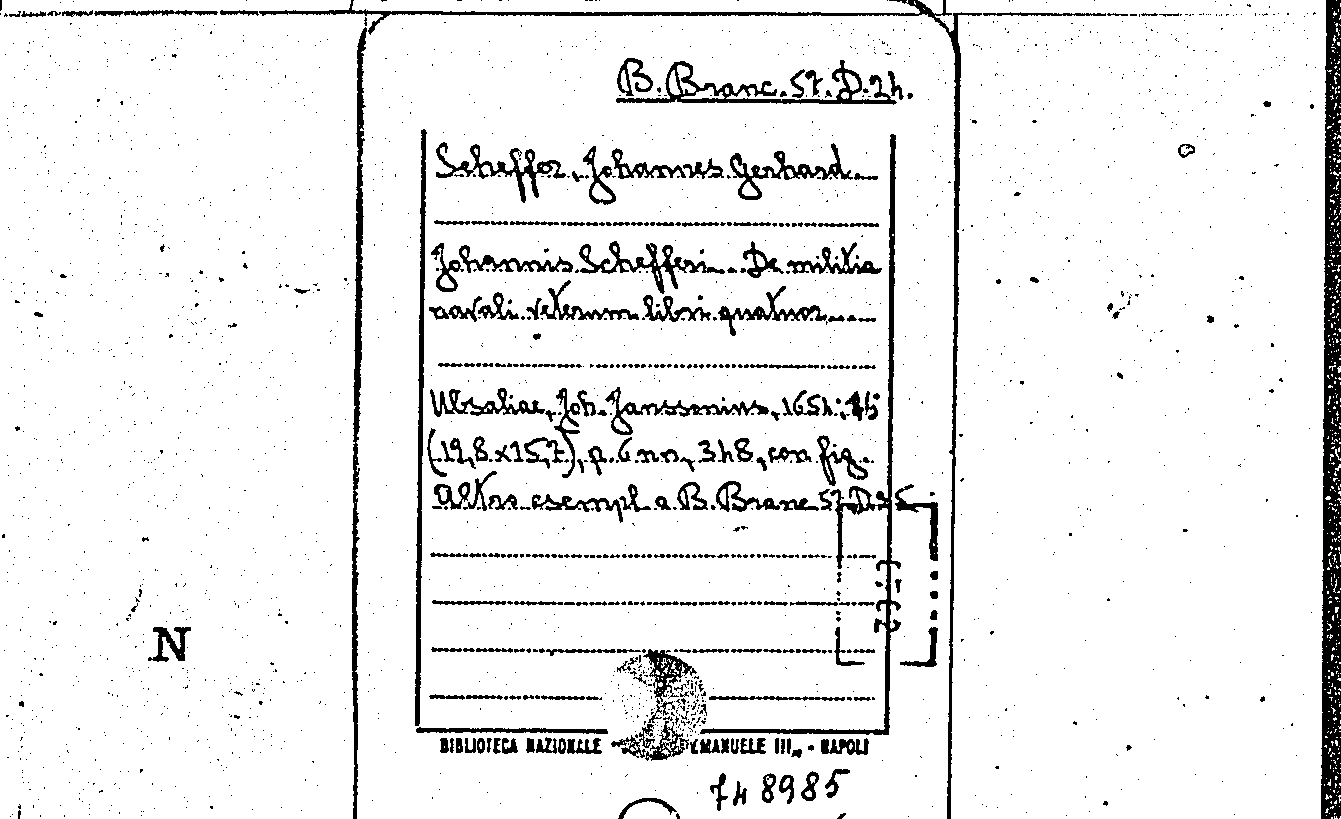 B. Branc. 57. D. 24.
Scheffer, Johannes Gerhard...
Johannis Schefferi... De militia
navali veterum libri quatuor....
Ubsaliae, Joh. Janssonius, 1654;
(19,8 x 15,7), p. 6 nn, 348, con fig.
Altro esempl. a B. Branc. 57. D. 25.
N
BIBLIOTECA NAZIONALE EMANUELE III„ - NAPOLI
748985